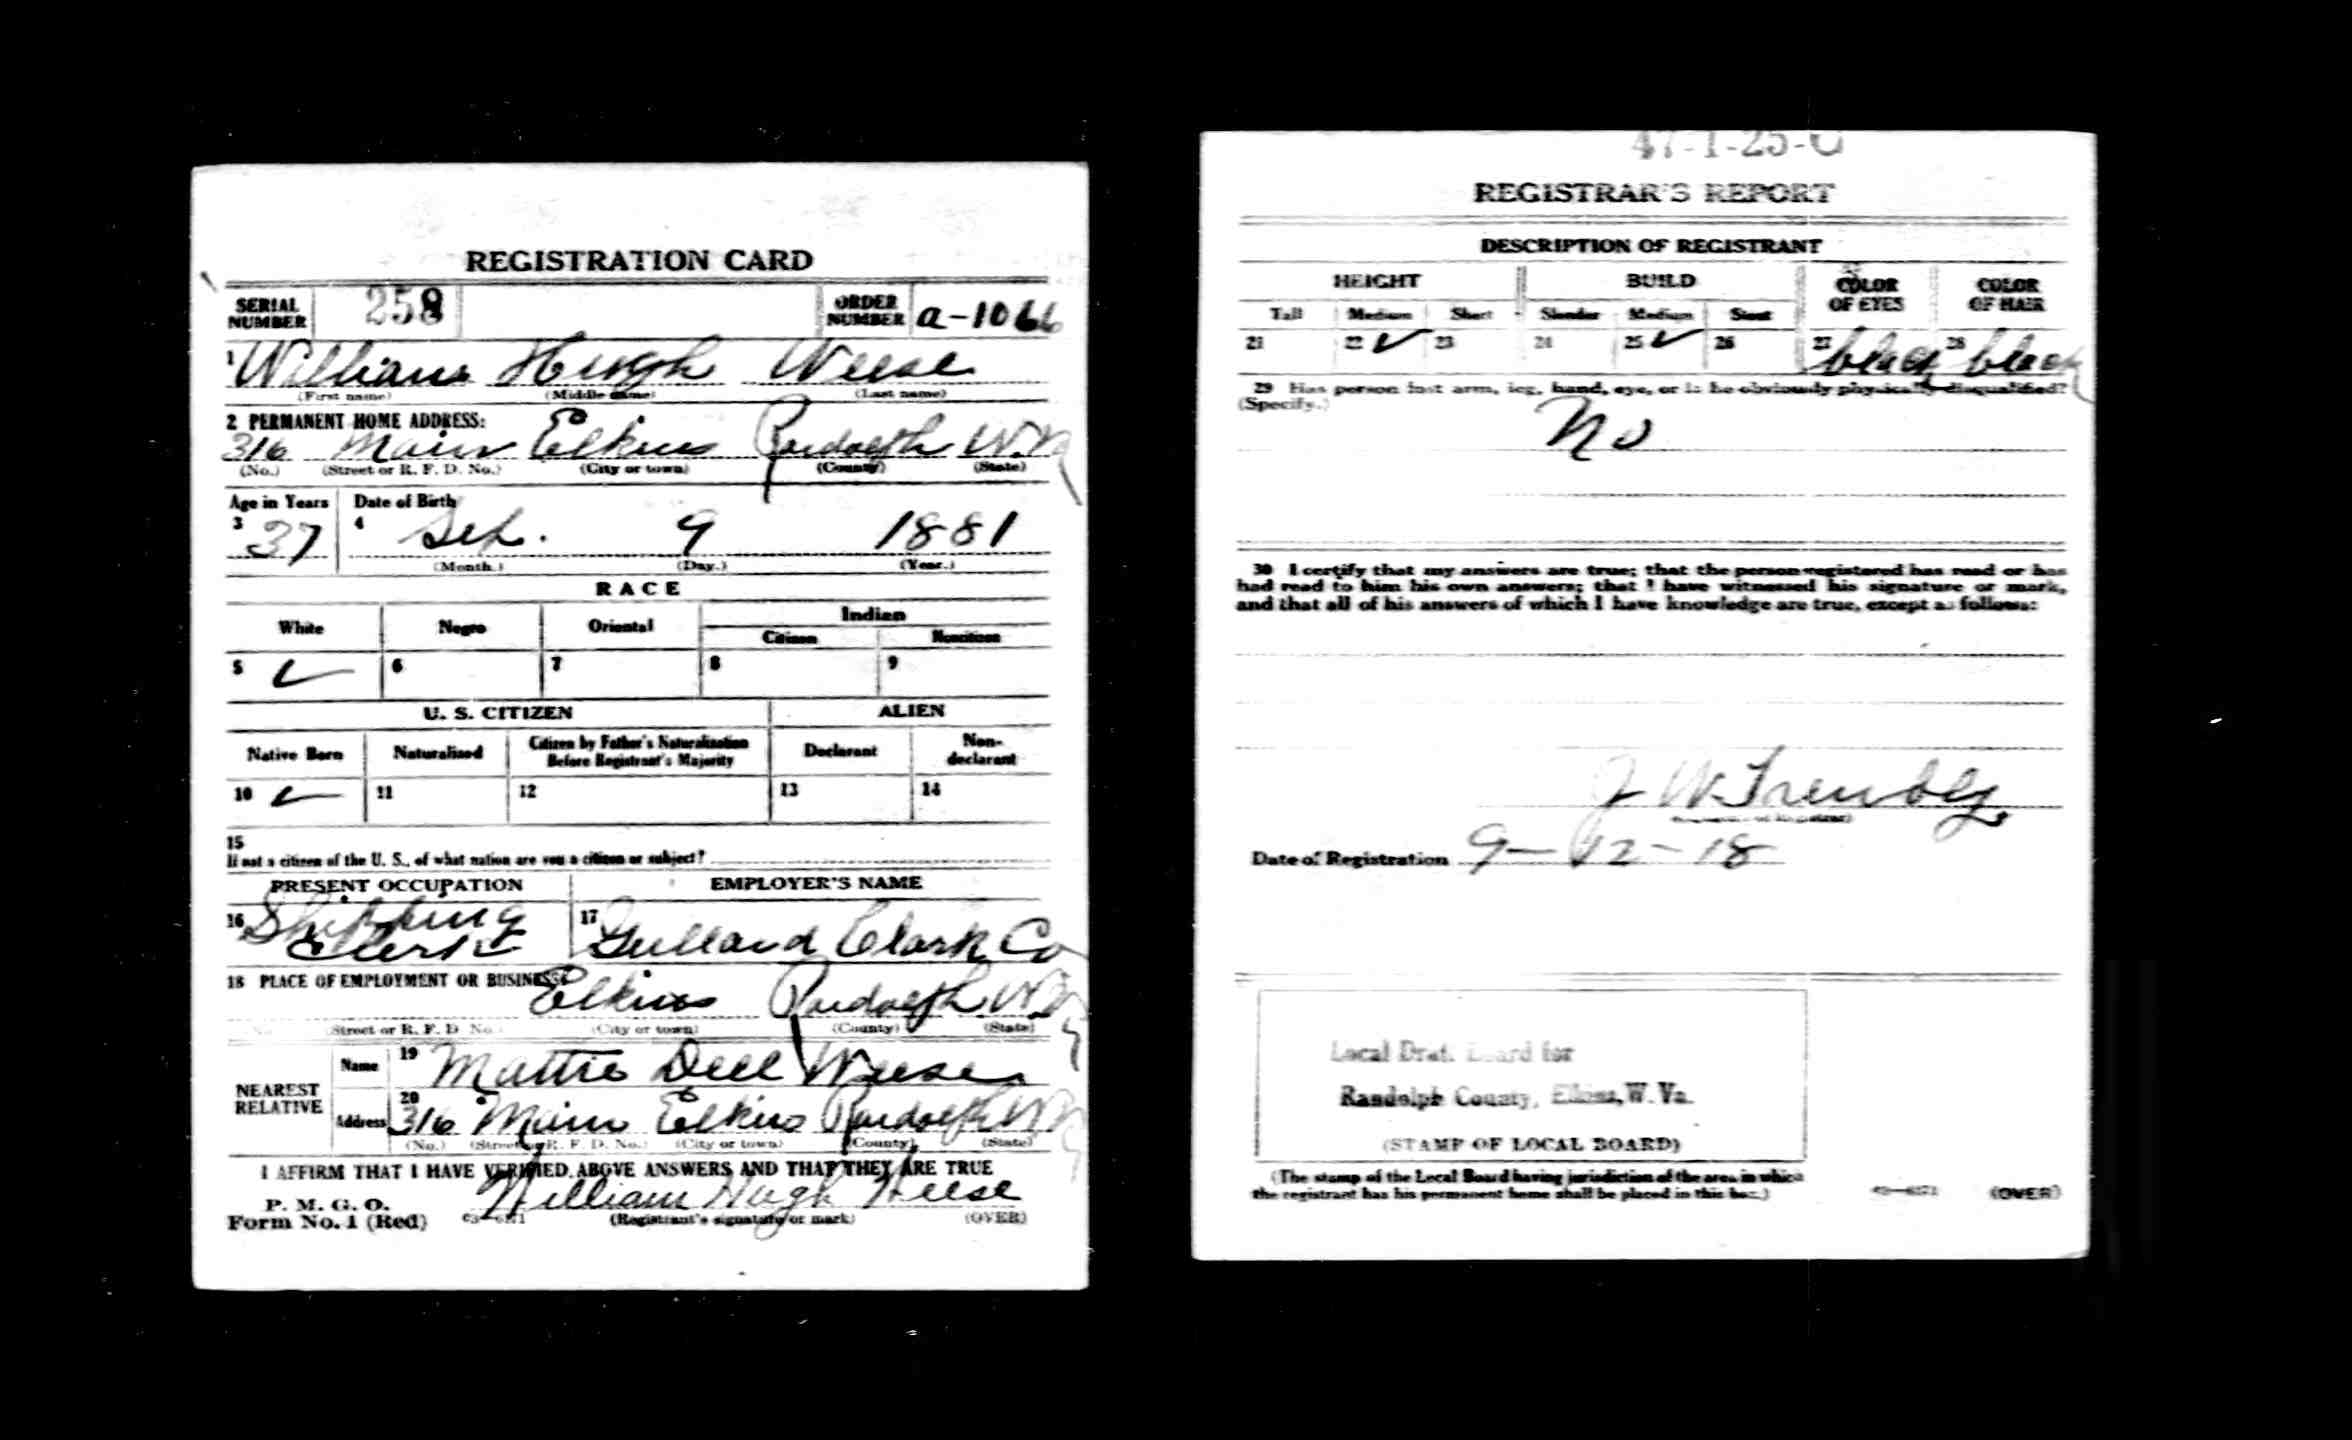 REGISTRATION CARD
SERIAL NUMBER 258 ORDER NUMBER a-1066
1 William Hugh Weese
(First name) (Middle name) (Last name)
2 PERMANENT HOME ADDRESS:
316 Main Elkins Randolph W.Va
(No.) (Street or R. F. D. No.) (City or town) (County) (State)
Age in Years Date of Birth
3 37 4 Sep. 9 1881
(Month.) (Day.) (Year.)
RACE
White Negro Oriental Indian
Citizen Noncitizen
5 ✓ 6 7 8 9
U. S. CITIZEN ALIEN
Native Born Naturalized Citizen by Father's Naturalization Before Registrant's Majority Declarant Non-declarant
10 ✓ 11 12 13 14
15
If not a citizen of the U. S., of what nation are you a citizen or subject?
PRESENT OCCUPATION EMPLOYER'S NAME
16 Shipping Clerk 17 Gulland Clark Co
18 PLACE OF EMPLOYMENT OR BUSINESS:
Elkins Randolph W.Va
(No.) (Street or R. F. D. No.) (City or town) (County) (State)
NEAREST RELATIVE Name 19 Mattie Dell Weese
Address 20 316 Main Elkins Randolph W.Va
(No.) (Street or R. F. D. No.) (City or town) (County) (State)
I AFFIRM THAT I HAVE VERIFIED ABOVE ANSWERS AND THAT THEY ARE TRUE
P. M. G. O.
Form No. 1 (Red) William Hugh Weese
(Registrant's signature or mark) (OVER)
47-1-25-C
REGISTRAR'S REPORT
DESCRIPTION OF REGISTRANT
HEIGHT BUILD COLOR OF EYES COLOR OF HAIR
Tall Medium Short Slender Medium Stout
21 22 ✓ 23 24 25 ✓ 26 27 black 28 black
29 Has person lost arm, leg, hand, eye, or is he obviously physically disqualified?
(Specify.)
No
30 I certify that my answers are true; that the person registered has read or has
had read to him his own answers; that I have witnessed his signature or mark,
and that all of his answers of which I have knowledge are true, except as follows:
J W Trembly
(Signature of Registrar)
Date of Registration 9-12-18
Local Draft Board for
Randolph County, Elkins, W. Va.
(STAMP OF LOCAL BOARD)
(The stamp of the Local Board having jurisdiction of the area in which
the registrant has his permanent home shall be placed in this box.)
(OVER)